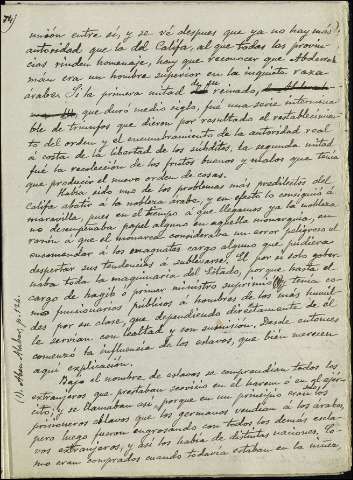 unión entre sí, y se vé despues que ya no hay más
autoridad que la del Califa, al que todas las provin-
cias rinden homenaje, hay que reconocer que Abderah-
mán era un hombre superior en la inquieta raza
árabe. Si la primera mitad de su reinado,
que duró medio siglo, fué una serie intermina-
ble de triunfos que dieron por resultado el restablecimien-
to del orden y el encumbramiento de la autoridad real
á costa de la libertad de los súbditos, la segunda mitad
fué la recolección de los frutos buenos y malos que tenía
que producir el nuevo orden de cosas.
Había sido uno de los problemas más predilectos del
Califa abatir á la nobleza árabe, y en efecto lo consiguió á
maravilla, pues en el tiempo á que llegamos ya la nobleza
no desempeñaba papel alguno en aquella monarquía, en
razón á que el monarca consideraba un error peligroso el
encomendar á los magnates cargo alguno que pudiera
despertar sus tendencias á sublevarse. Él por sí solo gober-
naba toda la maquinaria del Estado, porque hasta el
cargo de hagib ó primer ministro suprimió (1) tenía co-
mo funcionarios públicos á hombres de los más humil-
des por su clase, que dependiendo directamente de él
le servían con lealtad y con sumisión. Desde entonces
comenzó la influencia de los esclavos, que bien merecen
aquí explicación.
Bajo el nombre de eslavos se comprendían todos los
extranjeros que prestaban servicio en el harem ó en el ejér-
cito, y se llamaban así, porque en un principio eran los
prisioneros eslavos que los germanos vendían á los árabes,
pero luego fueron engrosando con todos los demás escla-
vos extranjeros, y así los había de distintas naciones. Co-
mo eran comprados cuando todavía estaban en la niñez